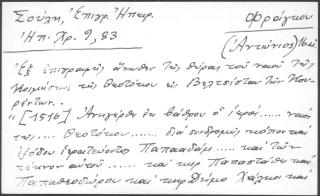 Σούλη, Ἐπιγρ. Ἠπειρ.
Φράγκου
Ἠπ. Χρ. 9, 83
(Ἀντώνιος)
Ἐξ ἐπιγραφῆς ἄνωθεν τῆς θύρας τοῦ ναοῦ τῆς
Κοιμήσεως τῆς Θεοτόκου ἐν Βελτσίστᾳ τῶν Κου-
ρέντων..
"(1516) Ἀνηγέρθη ἐκ βάθρου ὁ ἱερός..... ναὸς
τῆς.... Θεοτόκου...... διὰ συνδρομῆς κόπου καὶ
ἐξόδου ἱερατεύοντος Παπααδάμ.... καὶ τῶν
τέκνων αὐτοῦ..... καὶ κὺρ Παποστάθη καὶ
Παπαθεοδώρου καὶ κὺρ Δήμο καὶ